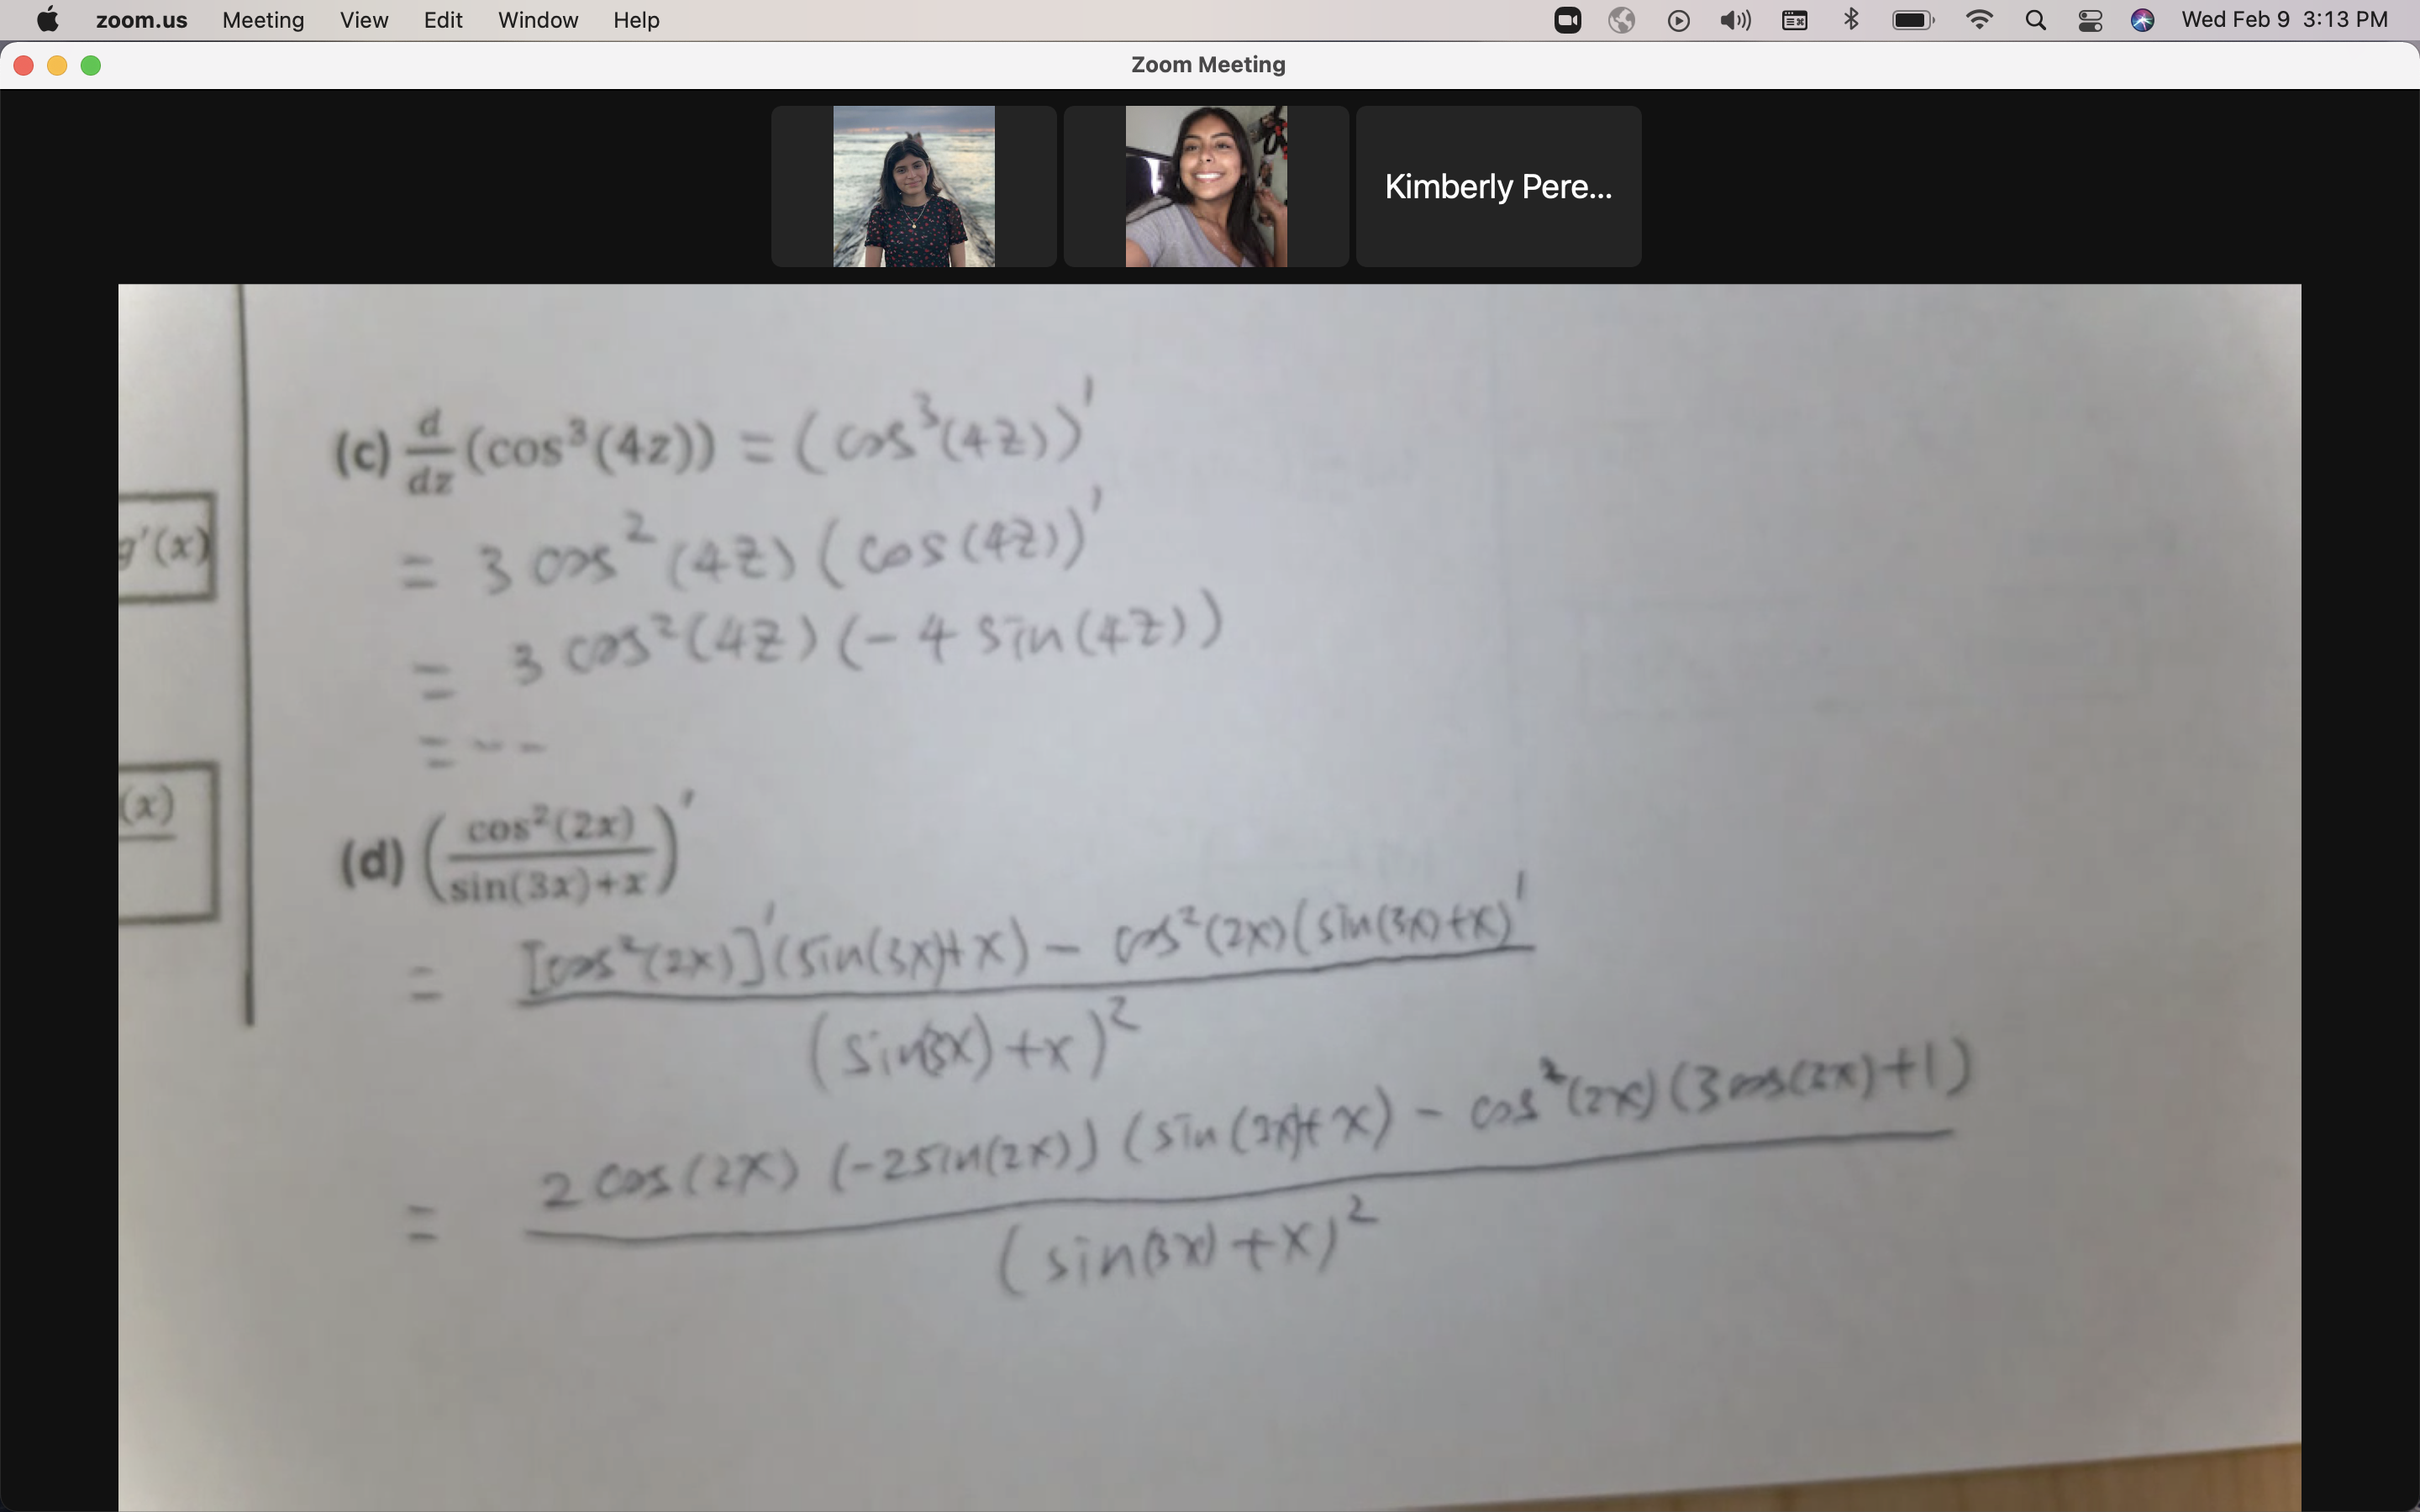 zoom.us Meeting View Edit Window Help Wed Feb 9 3:13 PM
Zoom Meeting
Kimberly Pere...
(c) d/dz (cos³(4z)) = (cos³(4z))'
g'(x)
= 3 cos² (4z) (cos(4z))'
= 3 cos²(4z) (-4 sin(4z))
= - -
(x)
(d) (cos²(2x) / sin(3x)+x)'
= [cos²(2x)]'(sin(3x)+x) - cos²(2x)(sin(3x)+x)' / (sin(3x)+x)²
= 2 cos(2x) (-2sin(2x)) (sin(3x)+x) - cos²(2x)(3cos(3x)+1) / (sin(3x)+x)²